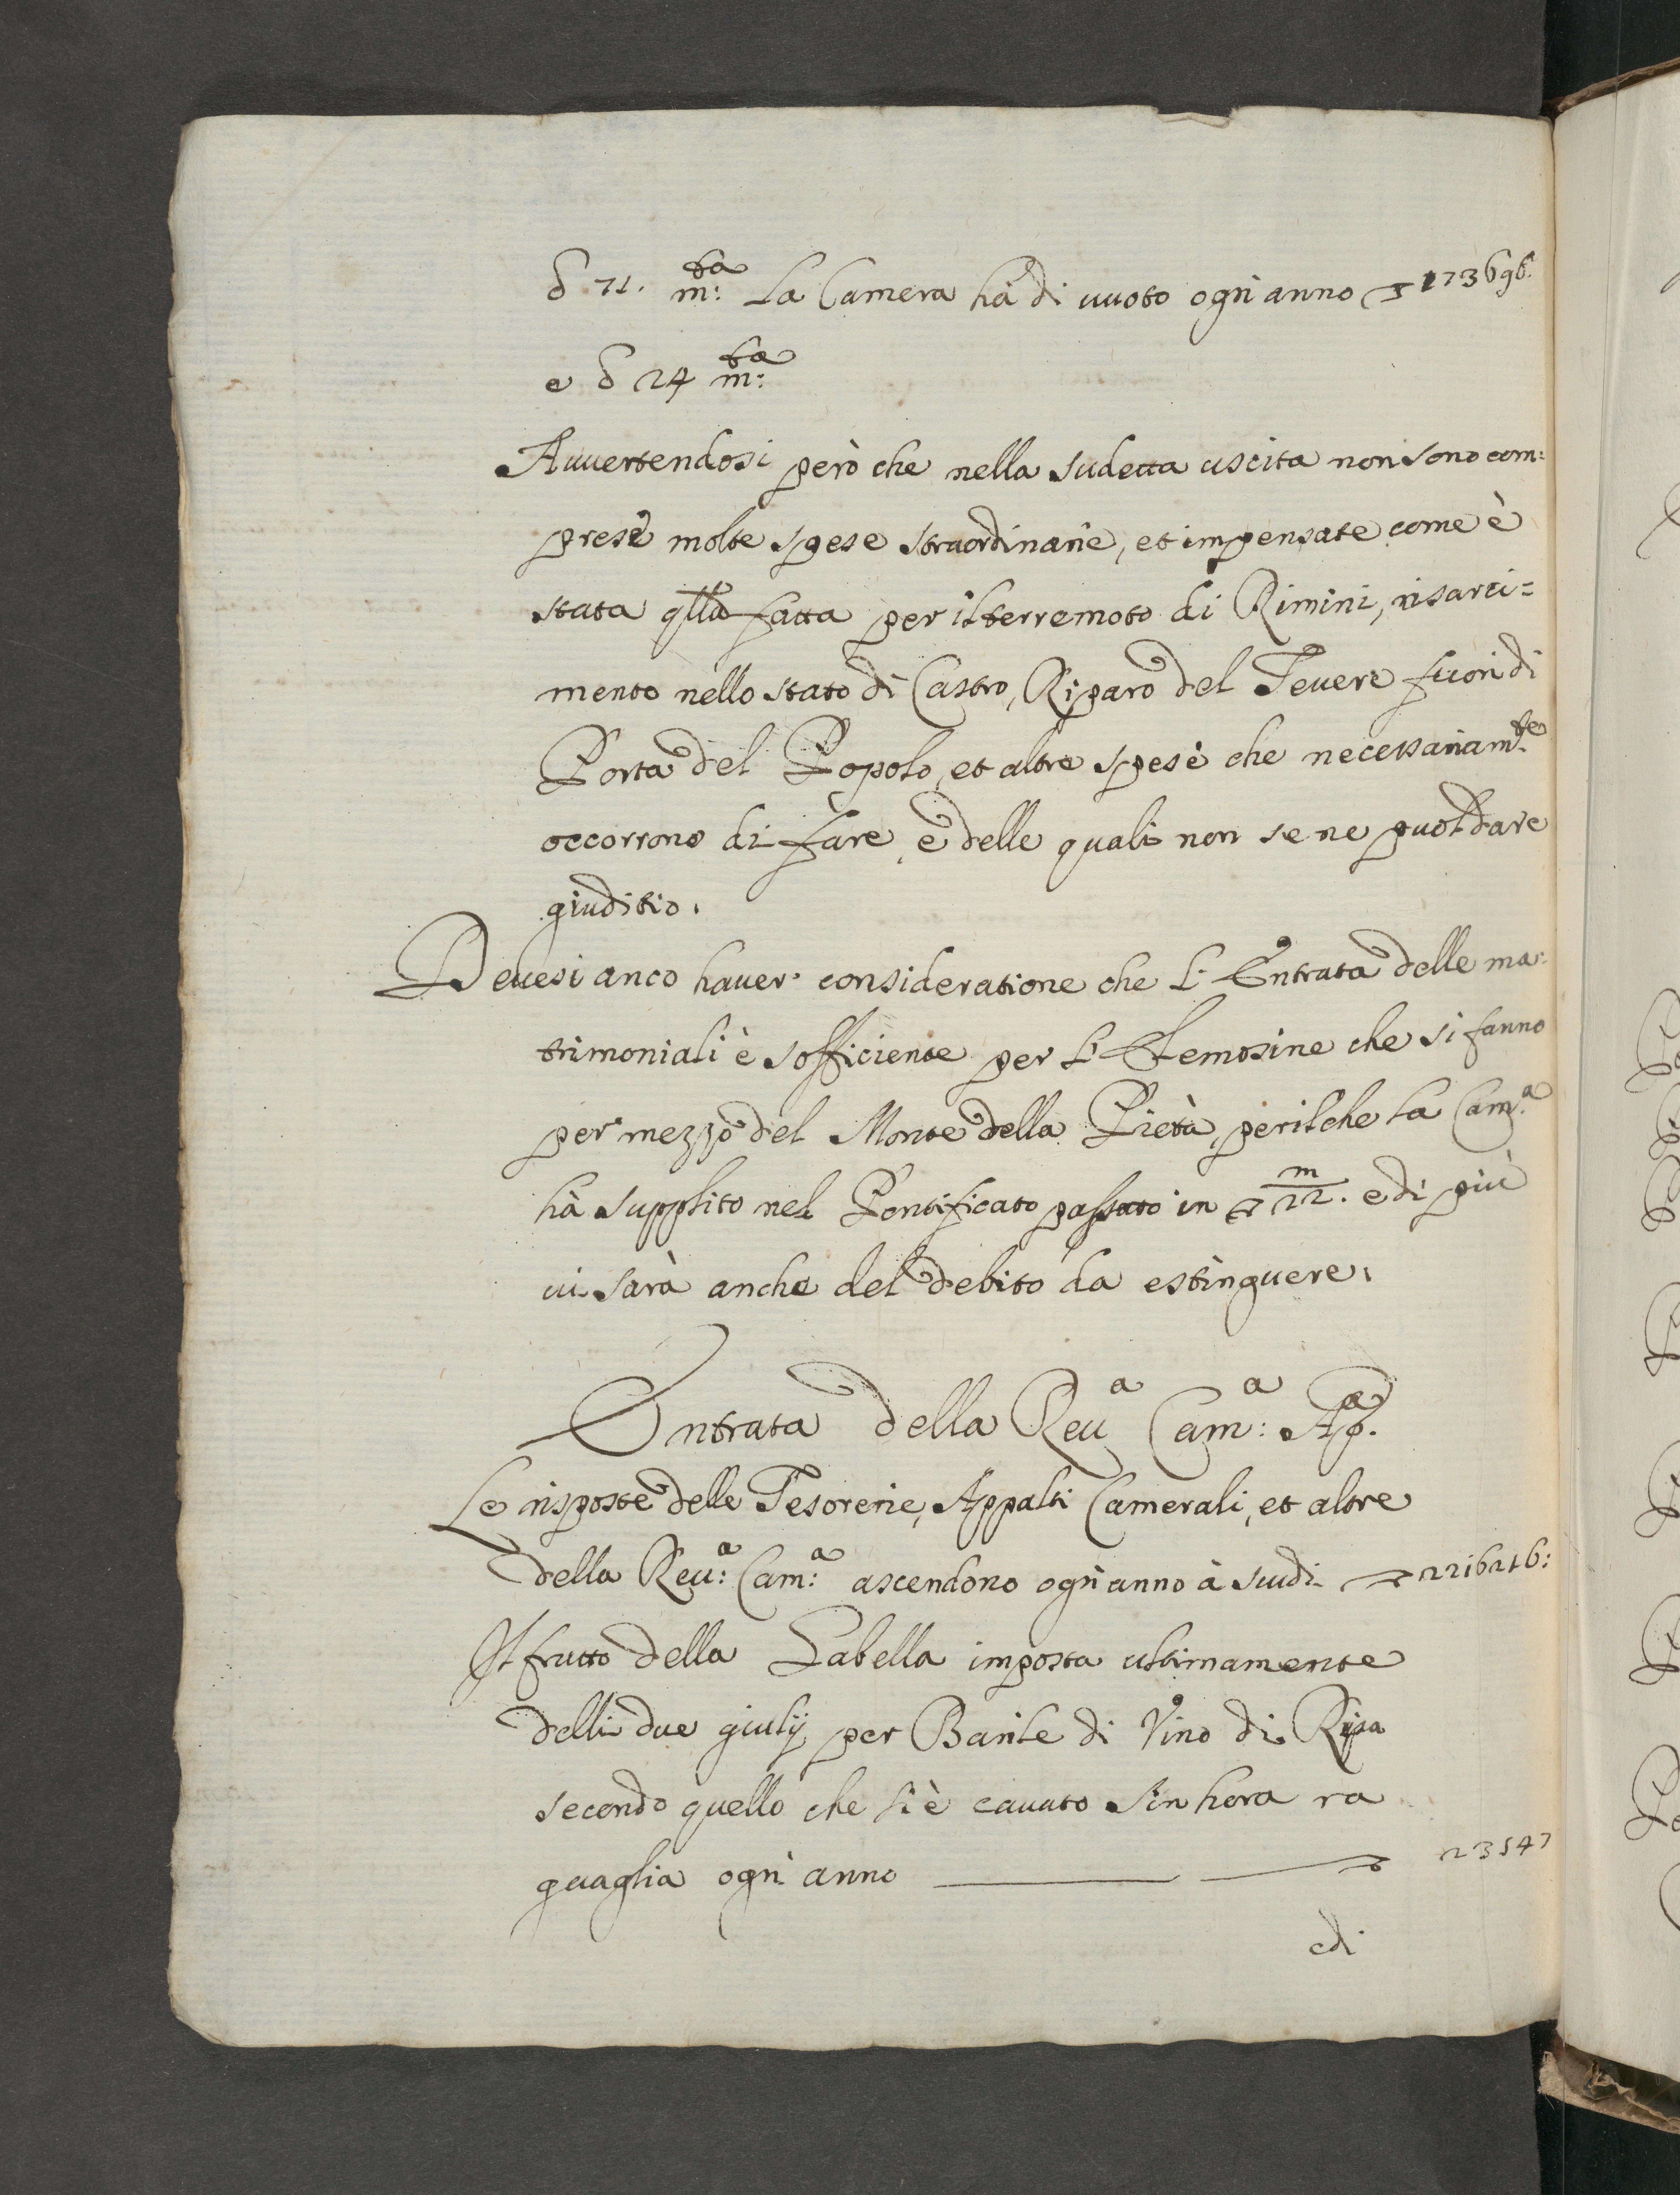 δ 71. m:ta La Camera hà di vuoto ogn'anno 173696.
e δ 24 m:ta
Auuertendosi però che nella sudetta uscita non sono com=
prese molte spese straordinarie, et impensate come è
stata qlla fatta per il terremoto di Rimini, risarci=
mento nello stato di Castro, Riparo del Teuere fuori di
Porta del Popolo, et altre spese che necessariam.te
occorrono di fare, e delle quali non se ne puol dare
giuditio.
Deuesi anco hauer consideratione che l'Entrata delle ma=
trimoniali è sofficiente per l'Elemosine che si fanno
per mezzo del Monte della Pietà, perilche la Cam.a
hà supplito nel Pontificato passato in 22.m e di più
ui sarà anche del debito da estinguere.
Entrata della Reu.a Cam:a Ap.a
Le risposte delle Tesorerie, Appalti Camerali, et altre
della Reu:a Cam:a ascendono ogn'anno à scudi 2216216:
Il frutto della Gabella imposta ultimamente
delli due giulij per Barile di Vino di Ripa
secondo quello che si è cauato sin hora ra
guaglia ogn'anno 23547
edi